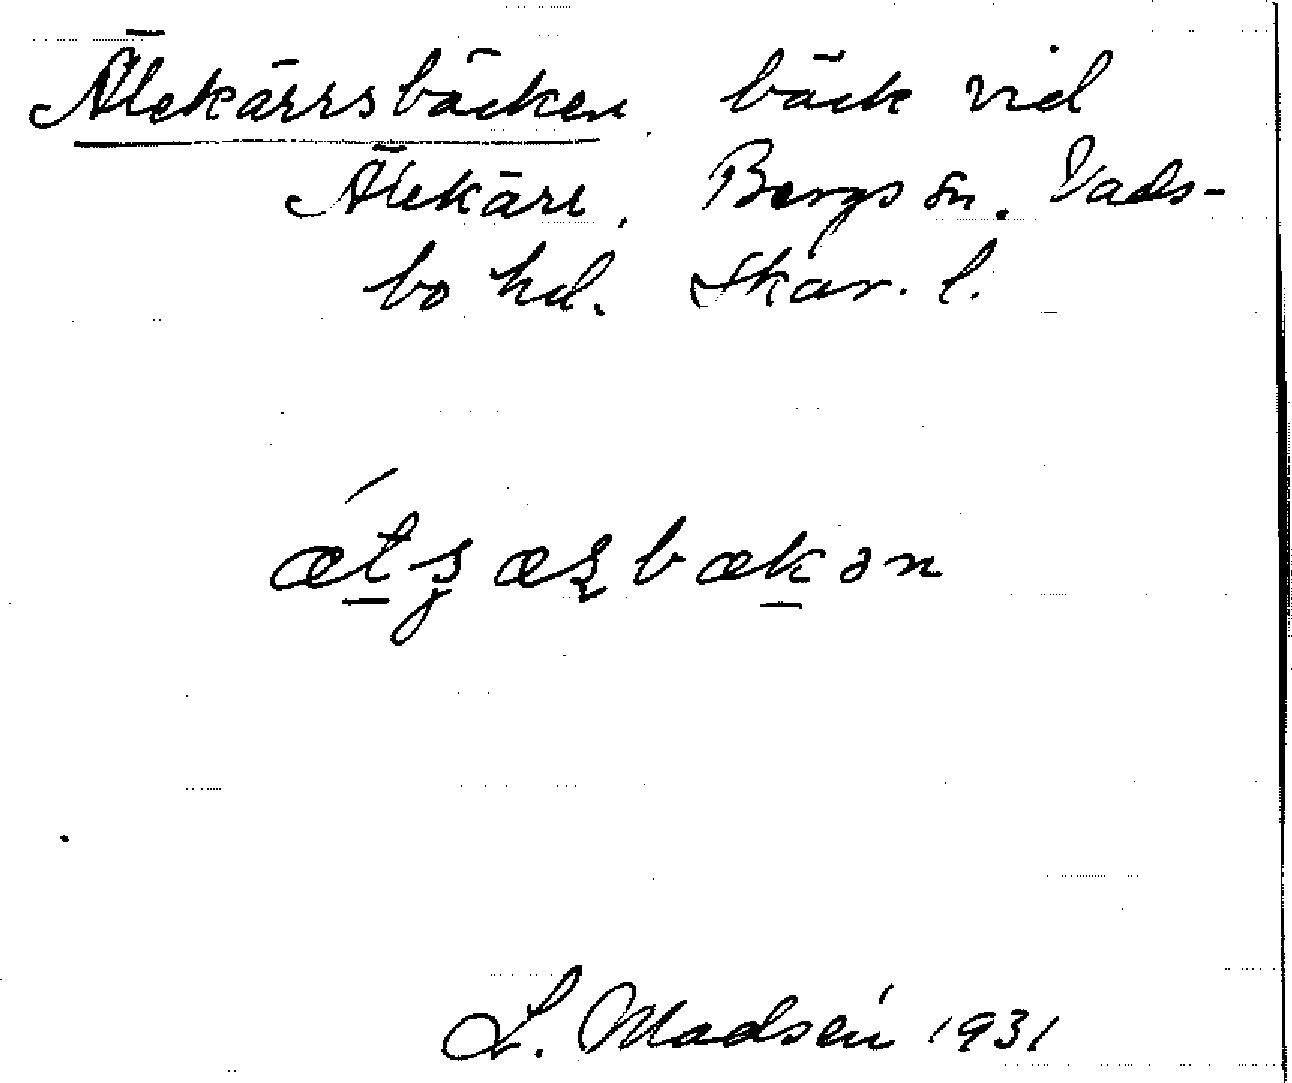 Älekärrsbäcken, bäck vid
Älekärr, Bergs sn. Vads-
bo hd. Skar. l.
L. Madsén 1931